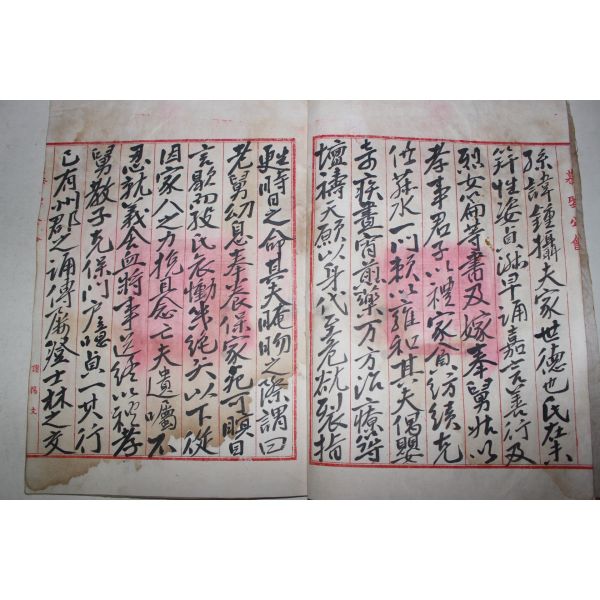 孫諱鍾攝夫家世德也氏在未
笄性姿貞淑早誦嘉言善行及
烈女篇等書及嫁奉舅姑以
孝事君子以禮家貧紡績克
供菽水一門賴以雍和其夫偶嬰
奇疾晝宵煎藥万方治療筮
壇禱天願以身代至危㞃裂指
甦時日之命其夫晻晻之際謂曰
老舅幼息奉養保家死可瞑目
言歇初殯氏哀慟幾絶矣以下從
因家人之力挽且念亡夫遺囑不
忍就義含血將事送終以禮孝
舅教子克保門戶隱貞一其行
已有州鄕之誦傳藹登士林之文